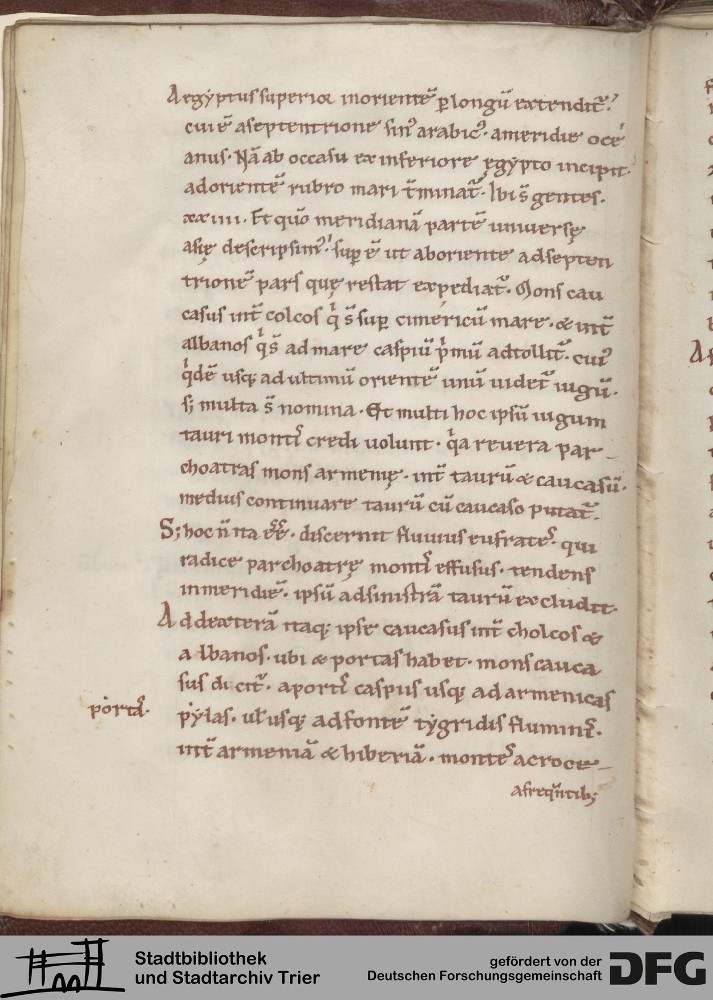 Aegẏptus superior in orientē ꝑ longū extendit᷑.
cui ē a septentrione sin᷒ arabic᷒. a meridie oce
anus. Nā ab occasu ex inferiore ęgẏpto incipit.
ad orientē rubro mari t̄minat᷑. Ibi s̄ gentes.
xxiiii. Et quō meridianā partē universę
asię descripsim᷒. suꝑ ē ut ab oriente ad septen
trionē pars quę restat expediat᷑. Mons cau
casus int̄ colcos qͥ s̄ suꝑ cimericū mare. & int̄
albanos qͥ s̄ ad mare caspiū pͥmū adtollit᷑. cui᷒
qͥdē usq; ad ultimū orientē unū videt᷑ iugū.
s; multa s̄ nomina. Et multi hoc ipsū iugum
tauri montis credi volunt. qͥa revera par-
choatras mons armenię. int̄ taurū & caucasū.
medius continuare taurū cū caucaso putat᷑.
S; hoc n̄ ita ēē. discernit fluvius eufrates. qui
radice parchoatrę montis effusus. tendens
in meridiē. ipsū ad sinistrā taurū excludit.
Ad dexterā itaq; ipse caucasus int̄ cholcos &
albanos. ubi & portas habet. mons cauca
sus dicit᷑. a portis caspiis usq; ad armenicas
portas.
pẏlas. ul̄ usq; ad fontē tẏgridis fluminis.
int̄ armeniā & hiberiā. montes acroce-
a freqn̄tib;
Stadtbibliothek
und Stadtarchiv Trier
gefördert von der
Deutschen Forschungsgemeinschaft
DFG